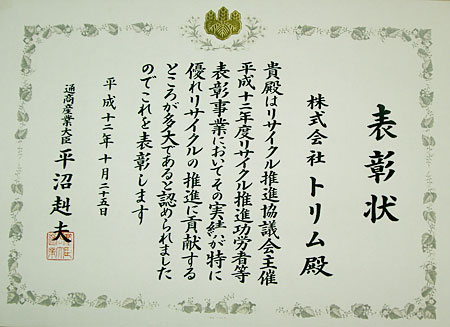 表彰状
株式会社 トリム殿
貴殿はリサイクル推進協議会主催
平成十二年度リサイクル推進功労者等
表彰事業においてその実績が特に
優れリサイクルの推進に貢献する
ところが多大であると認められました
のでこれを表彰します
平成十二年十月二十五日
通商産業大臣 平沼赳夫